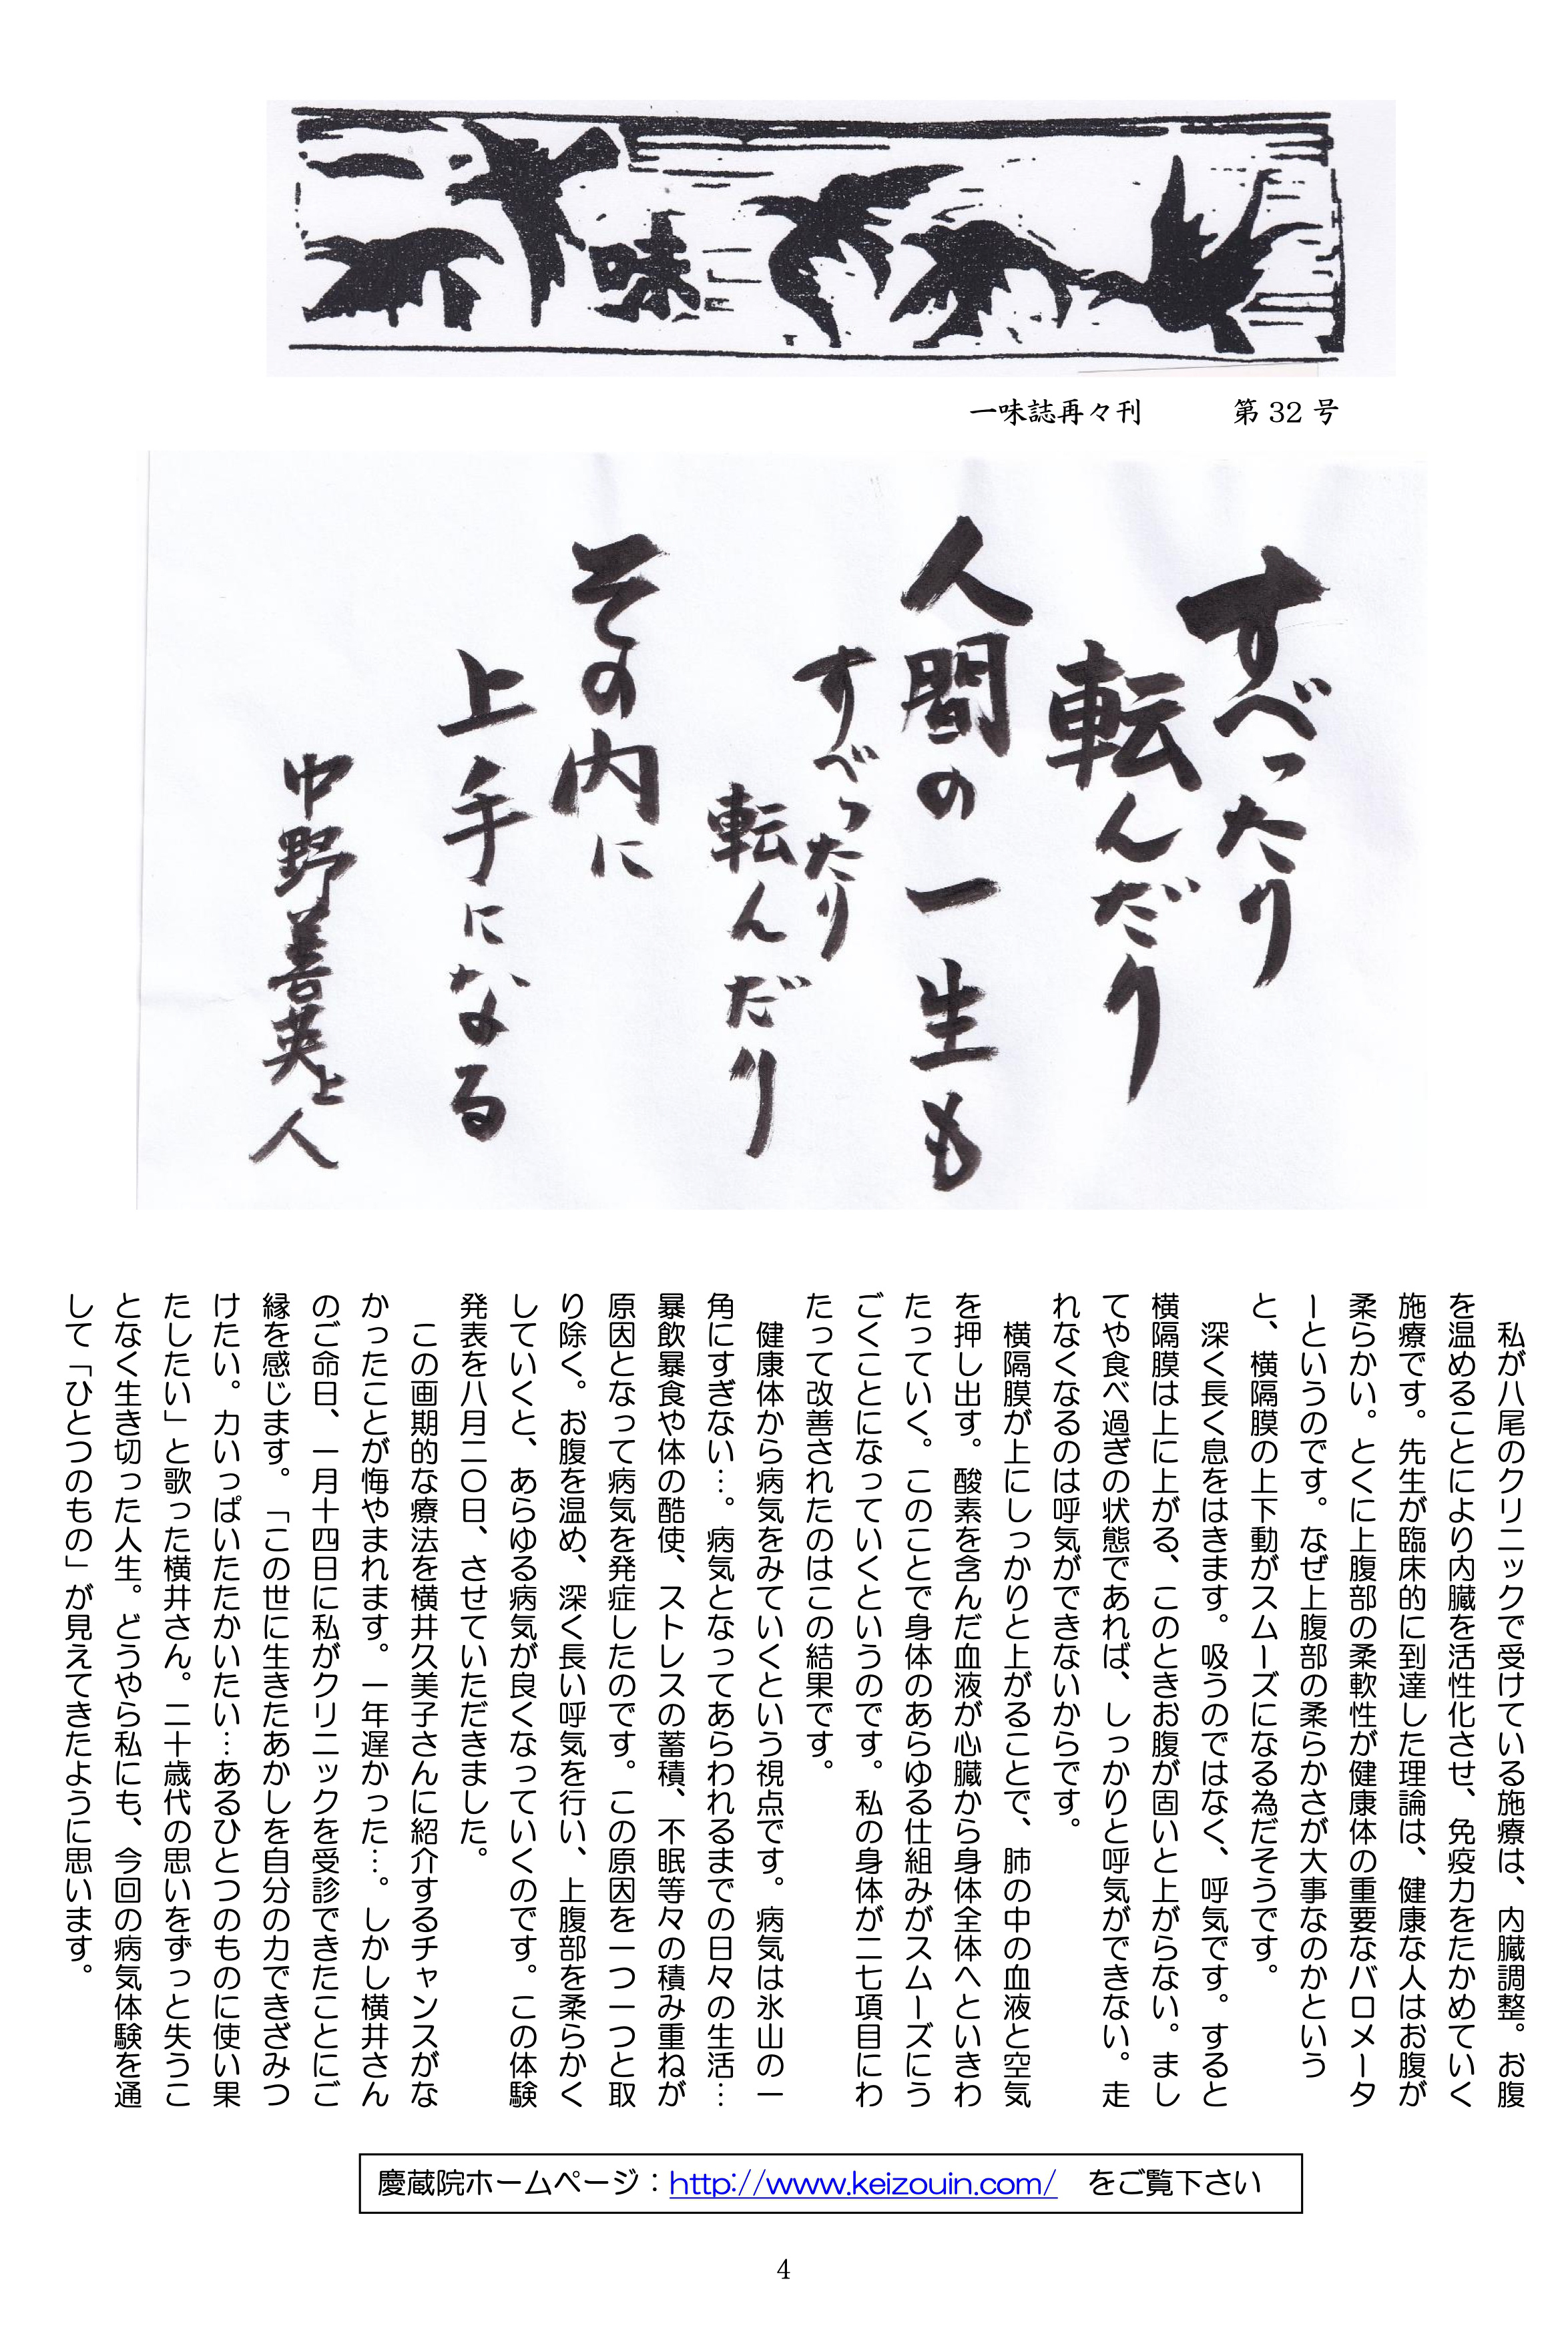 味
一味誌再々刊 第32号
すべったり
転んだり
人間の一生も
すべったり
転んだり
その内に
上手になる
中野善英上人
私が八尾のクリニックで受けている施療は、内臓調整。お腹
を温めることにより内臓を活性化させ、免疫力をたかめていく
施療です。先生が臨床的に到達した理論は、健康な人はお腹が
柔らかい。とくに上腹部の柔軟性が健康体の重要なバロメータ
ーというのです。なぜ上腹部の柔らかさが大事なのかという
と、横隔膜の上下動がスムーズになる為だそうです。
深く長く息をはきます。吸うのではなく、呼気です。すると
横隔膜は上に上がる、このときお腹が固いと上がらない。まし
てや食べ過ぎの状態であれば、しっかりと呼気ができない。走
れなくなるのは呼気ができないからです。
横隔膜が上にしっかりと上がることで、肺の中の血液と空気
を押し出す。酸素を含んだ血液が心臓から身体全体へといきわ
たっていく。このことで身体のあらゆる仕組みがスムーズにう
ごくことになっていくというのです。私の身体が二七項目にわ
たって改善されたのはこの結果です。
健康体から病気をみていくという視点です。病気は氷山の一
角にすぎない…。病気となってあらわれるまでの日々の生活…
暴飲暴食や体の酷使、ストレスの蓄積、不眠等々の積み重ねが
原因となって病気を発症したのです。この原因を一つ一つと取
り除く。お腹を温め、深く長い呼気を行い、上腹部を柔らかく
していくと、あらゆる病気が良くなっていくのです。この体験
発表を八月二〇日、させていただきました。
この画期的な療法を横井久美子さんに紹介するチャンスがな
かったことが悔やまれます。一年遅かった…。しかし横井さん
のご命日、一月十四日に私がクリニックを受診できたことにご
縁を感じます。「この世に生きたあかしを自分の力できざみつ
けたい。力いっぱいたたかいたい…あるひとつのものに使い果
たしたい」と歌った横井さん。二十歳代の思いをずっと失うこ
となく生き切った人生。どうやら私にも、今回の病気体験を通
して「ひとつのもの」が見えてきたように思います。
慶蔵院ホームページ：http://www.keizouin.com/ をご覧下さい
4